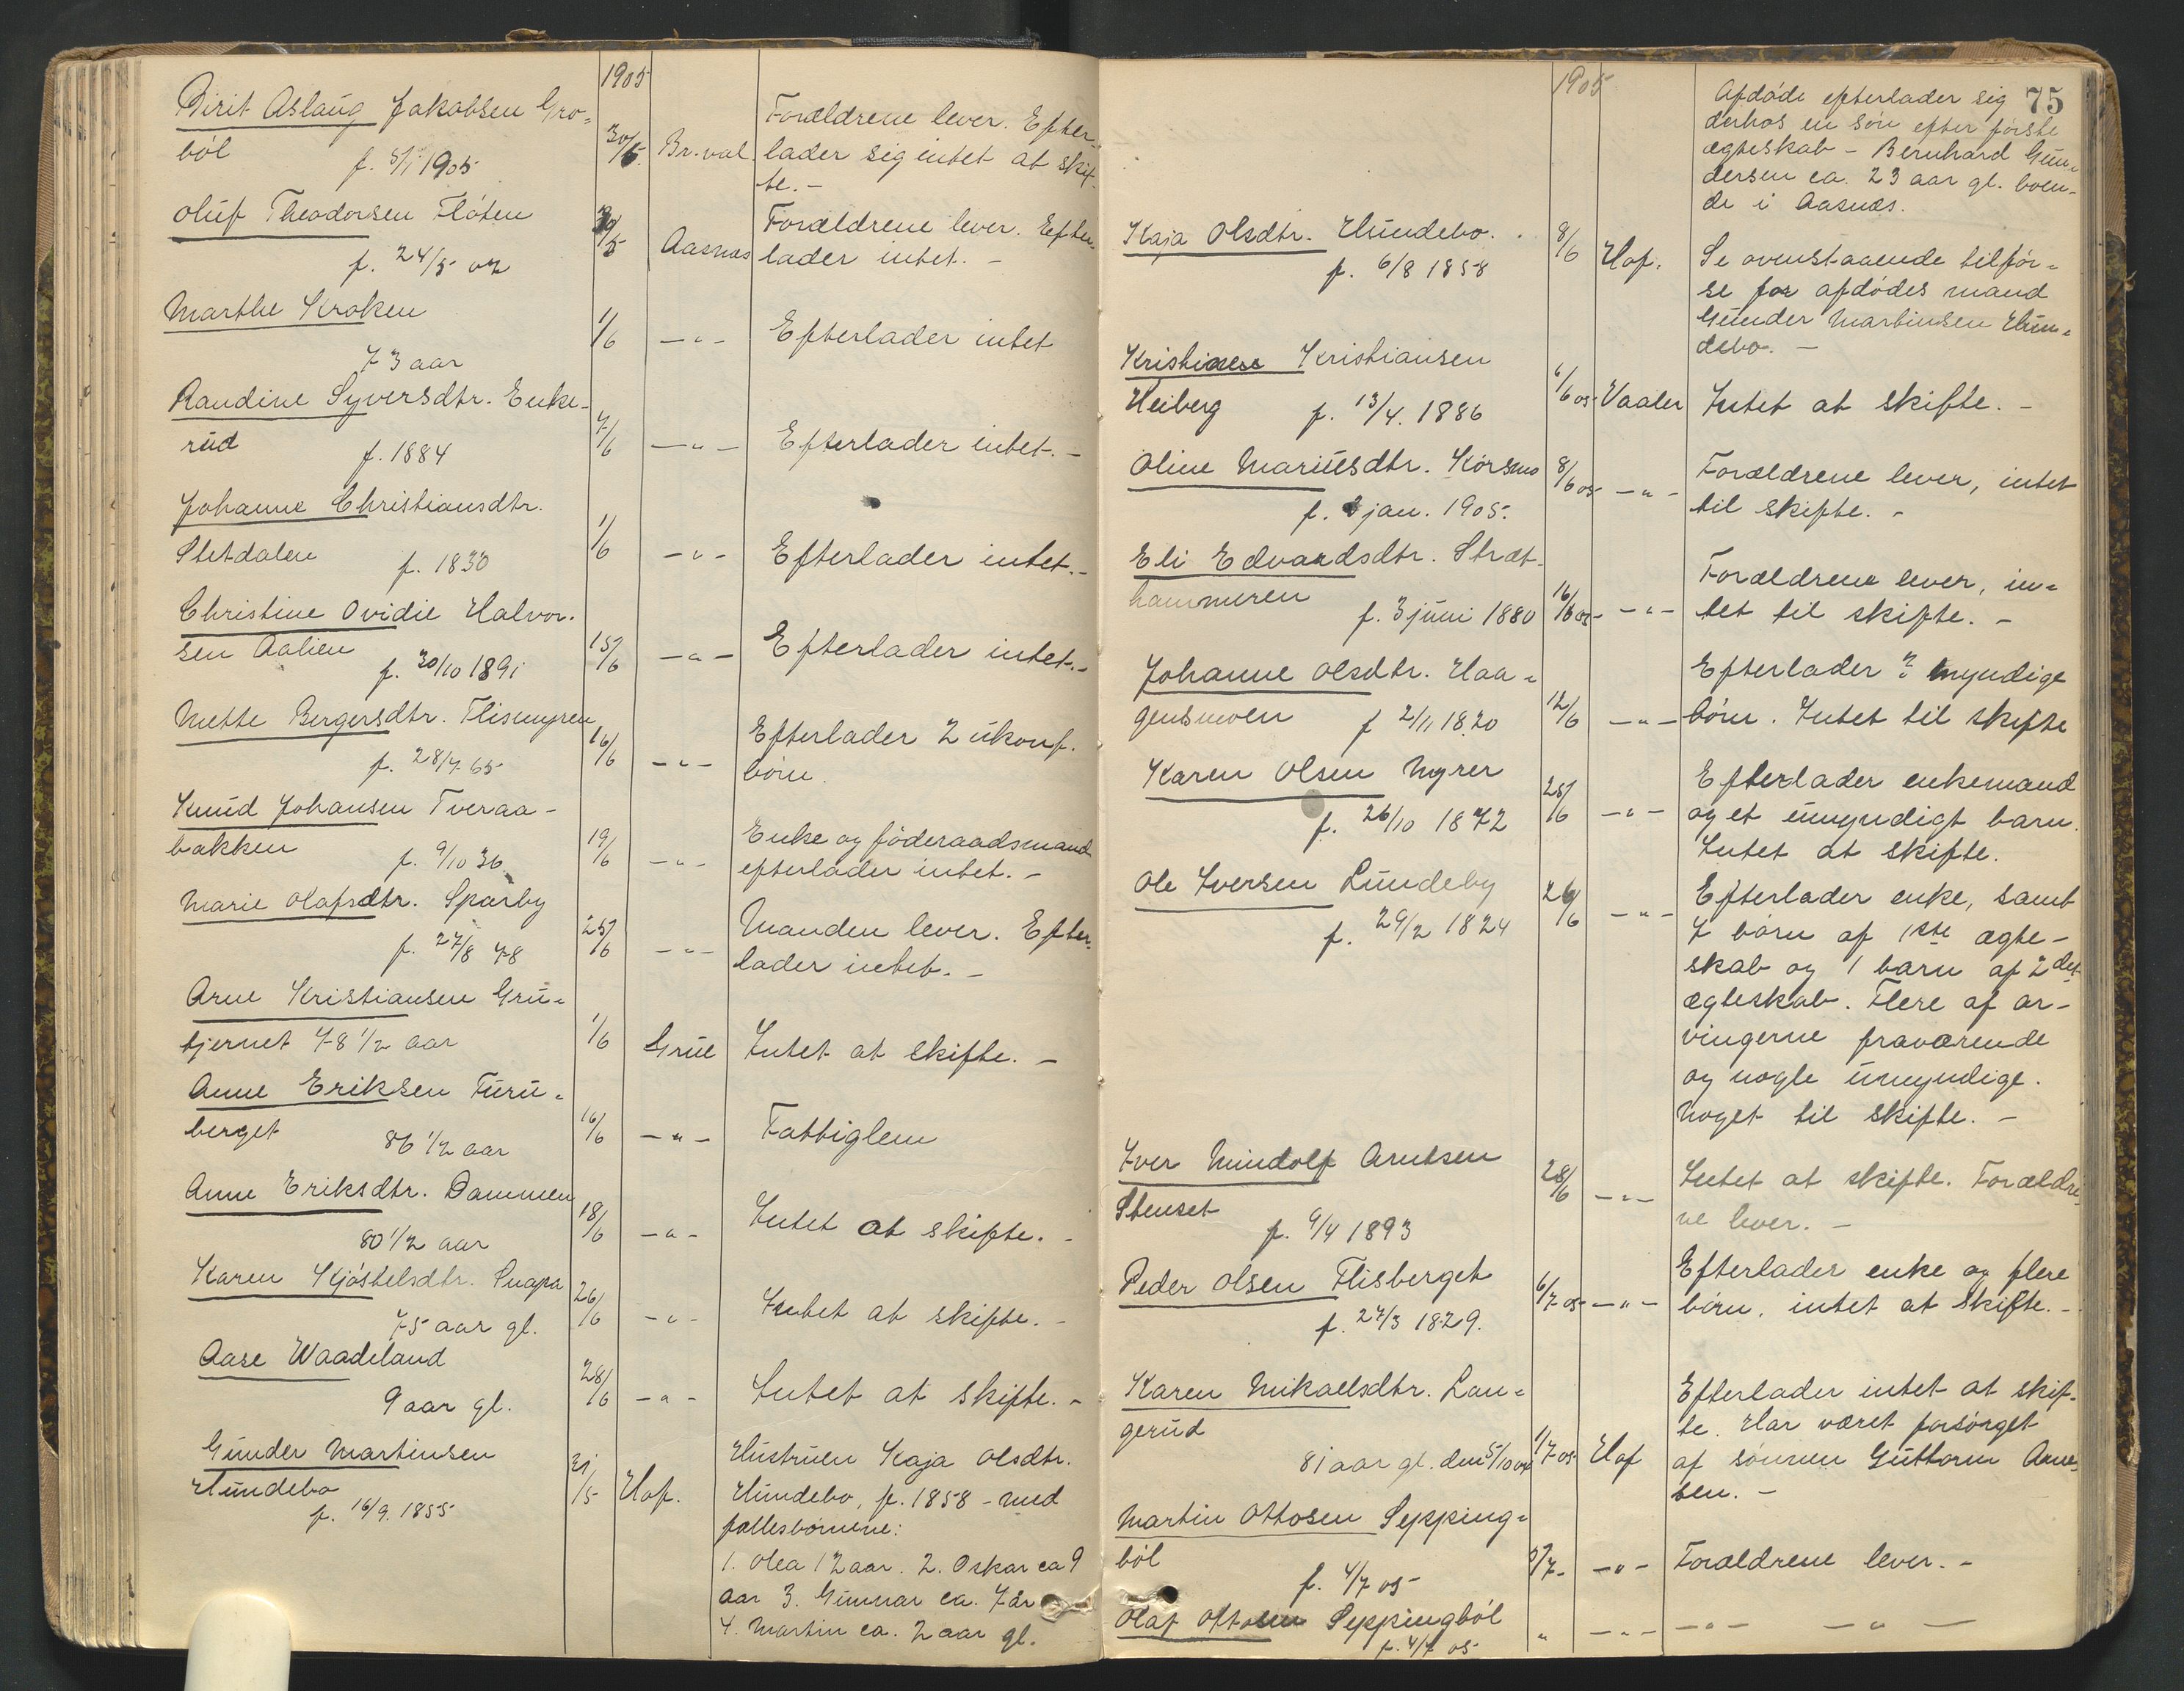 1905
Birit Aslaug Jakobsen Gro-
ból
f. 5/1 1905
30/5. Br.val.
Forældrene lever. Efter-
lader sig intet at skif-
te. -
Oluf Theodorsen Flóten
f. 24/5 02
30/5 Aasnes
Forældrene lever. Efter-
lader intet. -
Marthe Kroken
73 aar
1/6 - " - Efterlader intet
Randine Syversdtr. Enke-
rud
f. 1884
7/6 - " - Efterlader intet. -
Johanne Christiansdtr.
Sletdalen f. 1830
1/6 - " - Efterlader intet. -
Christine Ovidie Halvor-
sen Aalien
f. 30/10 1891
15/6 - " - Efterlader intet. -
Mette Bergersdtr. Flismyren
f. 28/7 65
16/6 - " - Efterlader 2 ukonf.
börn.
Knud Johansen Tveraa-
bakken
f. 9/10 36
19/6 - " - Enke og föderaadsmand
efterlader intet. -
Marie Olafsdtr. Sparby
f. 27/8 78
25/6 - " - Manden lever. Efter-
lader intet. -
Arne Kristiansen Gru-
tjernet 78 1/2 aar
1/6 Grue Intet at skifte. -
Anne Eriksen Furu-
berget
86 1/2 aar
16/6 - " - Fattiglem
Anne Eriksdtr. Dammen
80 1/2 aar
18/6 - " - Intet at skifte. -
Karen Kjöstelsdtr. Snapa
75 aar gl.
26/6 - " - Intet at skifte. -
Aase Waadeland
9 aar gl.
28/6 - " - Intet at skifte. -
Gunder Martinsen
Hundebo
f. 16/9. 1855
31/5 Hof.
Hustruen Kaja Olsdtr.
Hundebo, f. 1858 - med
fællesbörnene:
1. Olea 12 aar. 2. Oskar ca 9
aar 3. Gunnar ca. 7 år
4. Martin ca. 2 aar gl.
1905
75
Afdöde efterlader sig
derhos en sön efter förste
ægteskab - Bernhard Gun-
dersen ca. 23 aar gl. boen-
de i Aasnes.
Kaja Olsdtr. Hundebo.
f. 6/8 1858
8/6 Hof.
Se ovenstaaende tilför-
se for afdödes mand
Gunder Martinsen Hun-
debo. -
Kristian Kristiansen
Heiberg f. 13/4. 1886
6/6 05 Vaaler Intet at skifte. -
Oline Mariusdtr. Korsmo
f. 3 jan. 1905.
8/6 05 - " - Forældrene lever, intet
til skifte. -
Eli Edvardsdtr. Stræt-
hammeren
f. 3 juni 1880
16/6 05 - " - Forældrene lever, in-
tet til skifte. -
Johanne Olsdtr. Haa-
gensmoen f 2/11 1820
12/6 - " - Efterlader ? myndige
börn. Intet til skifte
Karen Olsen Myrer
f. 26/10 1872
25/6 - " - Efterlader enkemand
og et umyndigt barn.
Intet at skifte.
Ole Iversen Lundeby
f. 29/2 1824
26/6 - " - Efterlader enke, samt
7 börn af 1ste ægte-
skab og 1 barn af 2det
ægteskab. Flere af ar-
vingerne fraværende
og nogle umyndige.
Noget til skifte. -
Iver Mindolf Arntsen
Stenset
f. 9/4 1893
28/6 - " - Intet at skifte. Forældre-
ne lever. -
Peder Olsen Flisberget
f. 27/3 1829.
6/7 05 - " - Efterlader enke og flere
börn. intet at skifte. -
Karen Mikaelsdtr. Lan-
gerud
81 aar gl. den 5/10 04
1/7 05 Hof
Efterlader intet at skif-
te. Har været forsörget
af sönnen Guttorm Arne-
sen. -
Martin Ottosen Sypping-
ból
f. 4/7 05
5/7 - " - Forældrene lever. -
Olaf Ottosen Syppingból
f. 4/7 05
" - " - - " - - " -